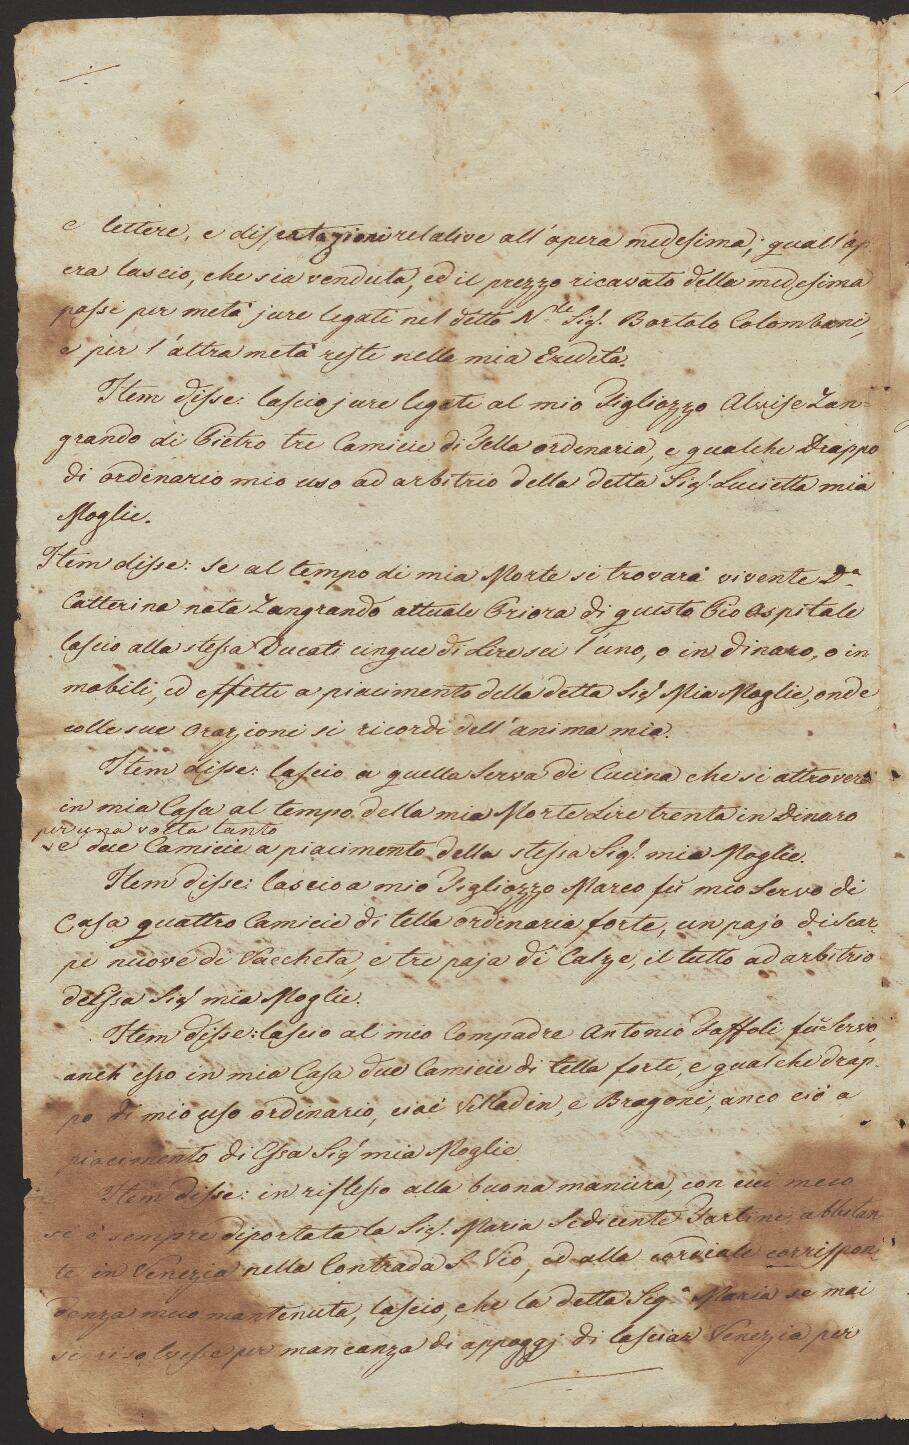 e lettere, e disertazioni relative all'opera medesima; qual'op
era lascio, che sia venduta, ed il prezzo ricavato della medesima
passi per metà jure legati nel detto N.le Sig.r Bortolo Colombani,
e per l'altra metà resti nella mia Eredità.
Item disse: lascio jure legati al mio Figliozzo Alvise Zan=
grando di Pietro tre Camicie di Tella ordenaria, e qualche Drappo
di ordenario mio uso ad arbitrio della detta Sig.r Lucietta mia
Moglie.
Item disse: se al tempo di mia Morte si trovarà vivente D.a
Catterina nata Zangrando attuale Priora di questo Pio Ospitale
lascio alla stessa Ducati cinque di Lire sei l'uno, o in dinaro, o in
mobili, ed effetti a piacimento della detta Sig.r Mia Moglie, onde
colle sue Orazioni si ricordi dell'anima mia.
Item disse: lascio a quella Serva di Cucina che si attroverà
in mia Casa al tempo della mia Morte Lire trenta in Dinaro
per una volta tanto
e due Camicie a piacimento della stessa Sig.r mia Moglie.
Item disse: lascio a mio Figliozzo Marco fù mio Servo di
Casa quattro Camicie di tella ordinaria forte, un pajo di scar=
pe nuove di Vaccheta, e tre paja di Calze, il tutto ad arbitrio
di Essa Sig.r mia Moglie.
Item disse: lascio al mio Compadre Antonio Taffoli fù Servo,
anch'esso in mia Casa due Camicie di tella forte, e qualche drap=
po di mio uso ordinario, cioè Velladin, e Bragoni, anco ciò a
piacimento di Essa Sig.r mia Moglie.
Item disse: in riflesso alla buona maniera, con cui meco
si è sempre diportata la Sig.r Maria Sedicente Tartini, abbitan
te in Venezia nella Contrada S. Vio, ed alla cordiale corrispon=
denza meco mantenuta, lascio, che la detta Sig.a Maria se mai
si risolvesse per mancanza di appoggj di lasciar Venezia per